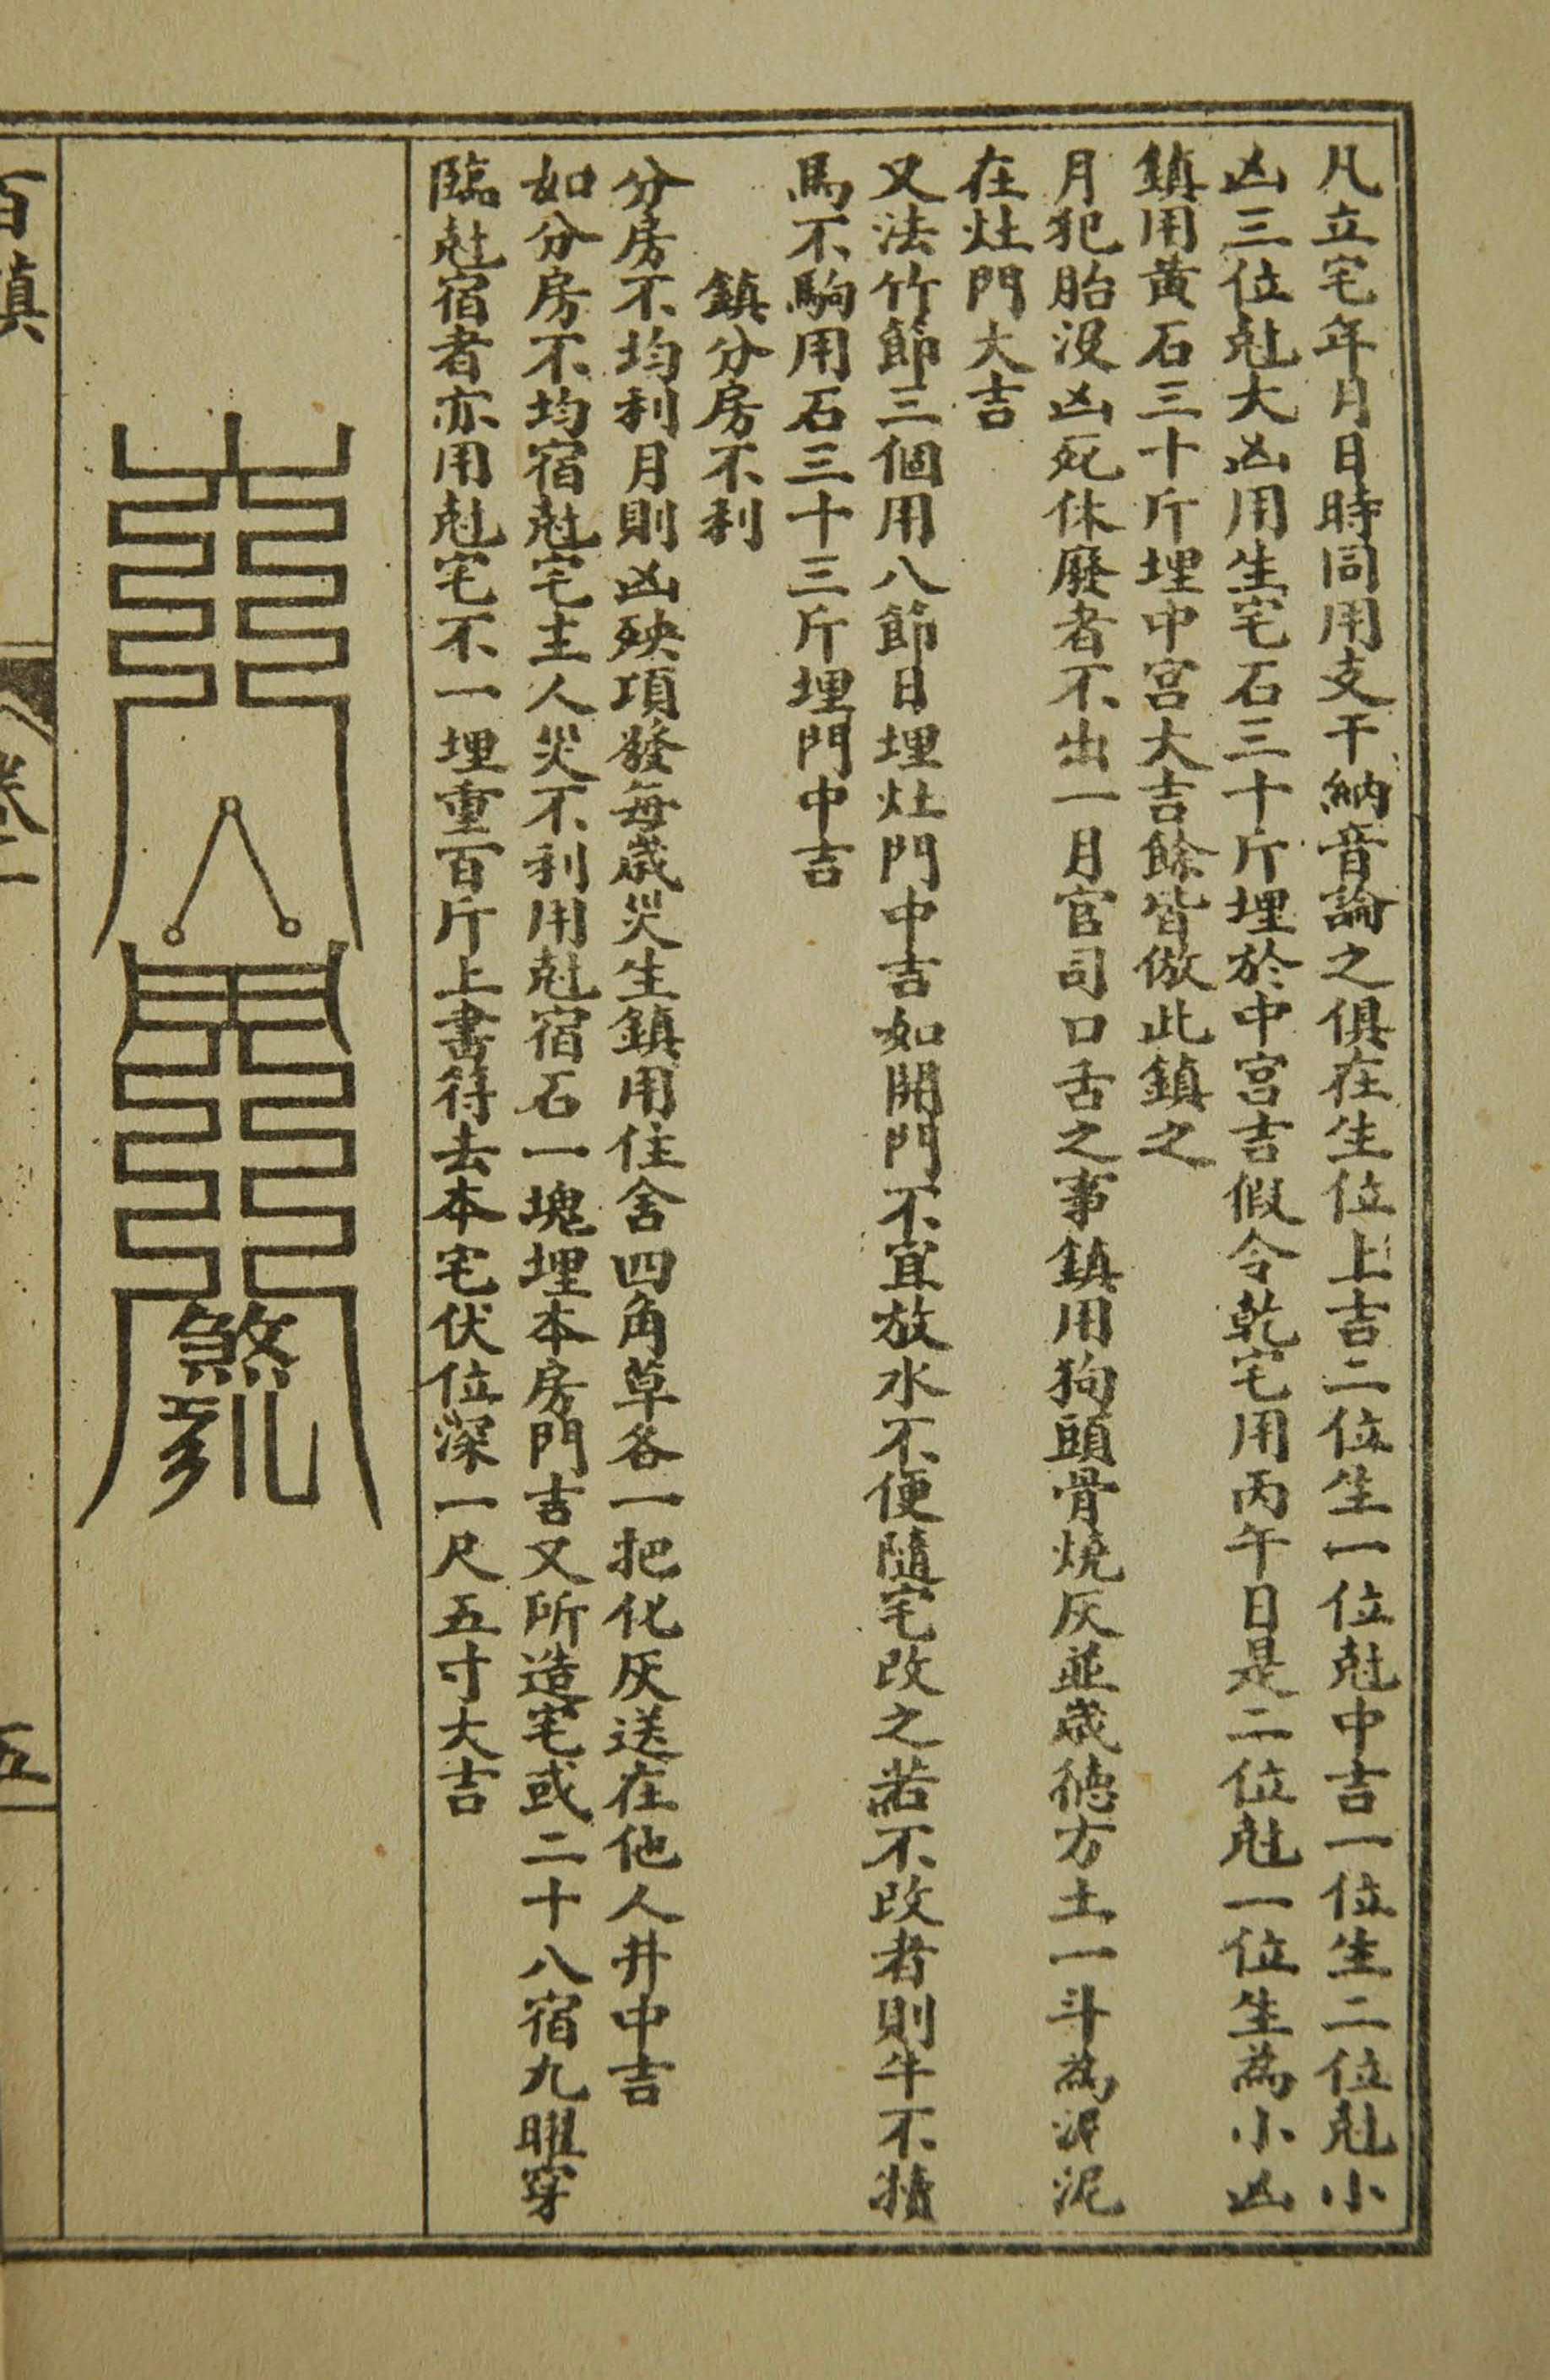 凡立宅年月日時同用支干納音論之俱在生位上吉二位生一位尅中吉一位生二位尅小
凶三位尅大凶用生宅石三十斤埋於中宮吉假令乾宅用丙午日是二位尅一位生為小凶
鎮用黃石三十斤埋中宮大吉餘皆倣此鎮之
月犯胎沒凶死休廢者不出一月官司口舌之事鎮用狗頭骨燒灰並歲德方土一斗為泥泥
在灶門大吉
又法竹節三個用八節日埋灶門中吉如開門不宜放水不便隨宅改之若不改者則牛不犢
馬不駒用石三十三斤埋門中吉
鎮分房不利
分房不均利月則凶殃項發每歲災生鎮用住舍四角草各一把化灰送在他人井中吉
如分房不均宿尅宅主人災不利用尅宿石一塊埋本房門吉又所造宅或二十八宿九曜穿
臨尅宿者亦用尅宅不一埋重百斤上書符去本宅伏位深一尺五寸大吉
煞
百鎮
卷二
五